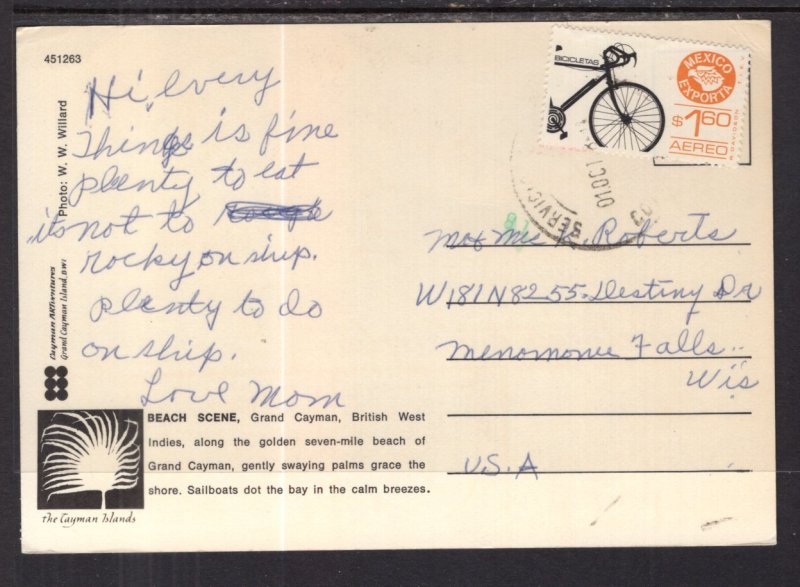 451263
Hi, every
Things is fine
plenty to eat
its not to
rocky on ship.
plenty to do
on ship.
Love Mom
Photo: W. W. Willard
Cayman ARTventures
Grand Cayman Island, BWI
BEACH SCENE, Grand Cayman, British West
Indies, along the golden seven-mile beach of
Grand Cayman, gently swaying palms grace the
shore. Sailboats dot the bay in the calm breezes.
The Cayman Islands
BICICLETAS
MEXICO
EXPORTA
$1.60
AEREO
R. DAVIDSON
SERVICI
01 OCT
Roberts
W181N8255 Destiny Dr
Menomonie Falls
Wis
U.S.A